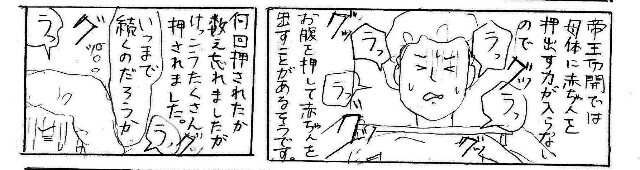 帝王切開では
母体に赤ちゃんを
押出す力が入らない
ので
お腹を押して赤ちゃんを
出すことがあるそうです。
うっ
うっ
うっ
うっ
グッ
グッ
グッ
グッ
何回押されたか
数え忘れましたが
けっこうたくさん
押されました。
グッ
いつまで
続くのだろうか
グッ
うっ
うっ